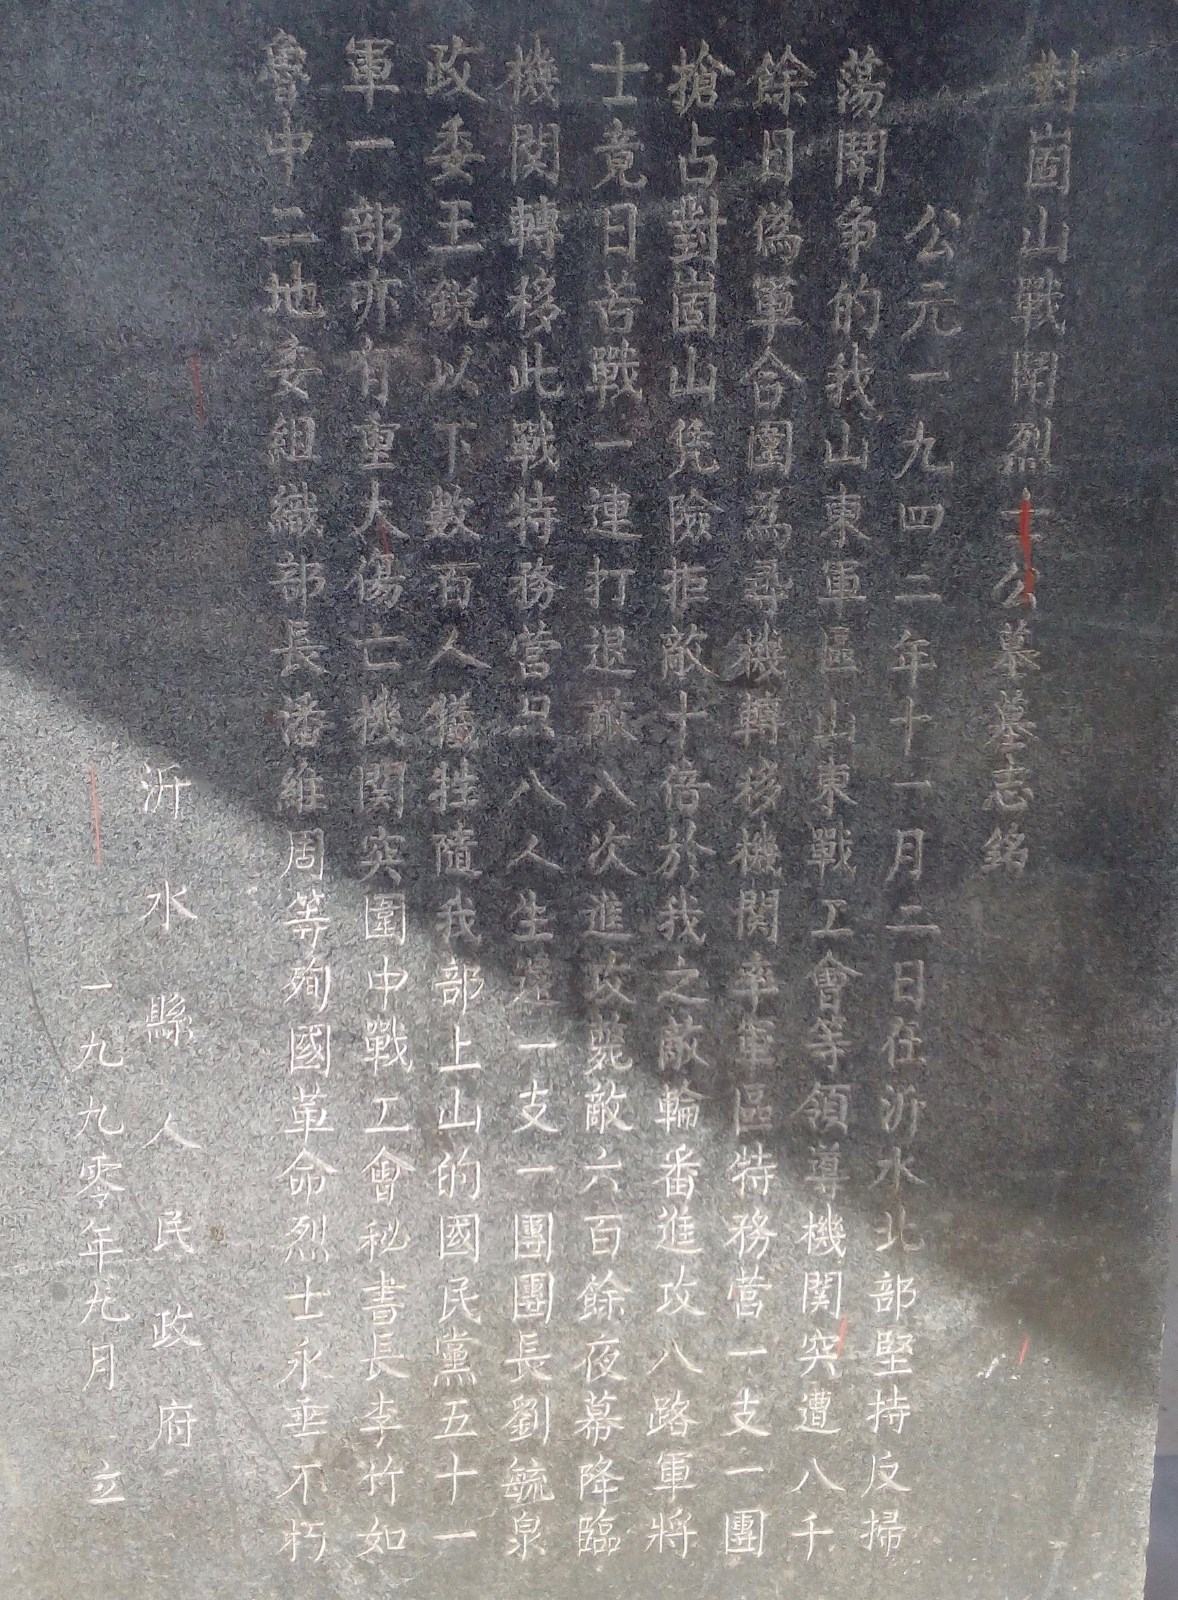 對崮山戰鬧烈士公墓墓志銘
公元一九四二年十一月二日在沂水北部堅持反掃
蕩鬪争的我山東軍區山東戰工會等領導機関突遭八千
餘日偽軍合圍為尋機轉移機関率軍區特務营一支一團
搶占對崮山凭險拒敵十倍於我之敵輪番進攻八路軍將
士竟日苦戰一連打退敵八次進攻斃敵六百餘夜幕降臨
機関轉移此戰特務营只八人生還一支一團團長劉毓泉
政委王銳以下數百人犧牲隨我部上山的國民黨五十一
軍一部亦有重大傷亡機関突圍中戰工會秘書長李竹如
魯中二地委組織部長潘維周等殉國革命烈士永垂不朽
沂水縣人民政府
一九九零年九月 立